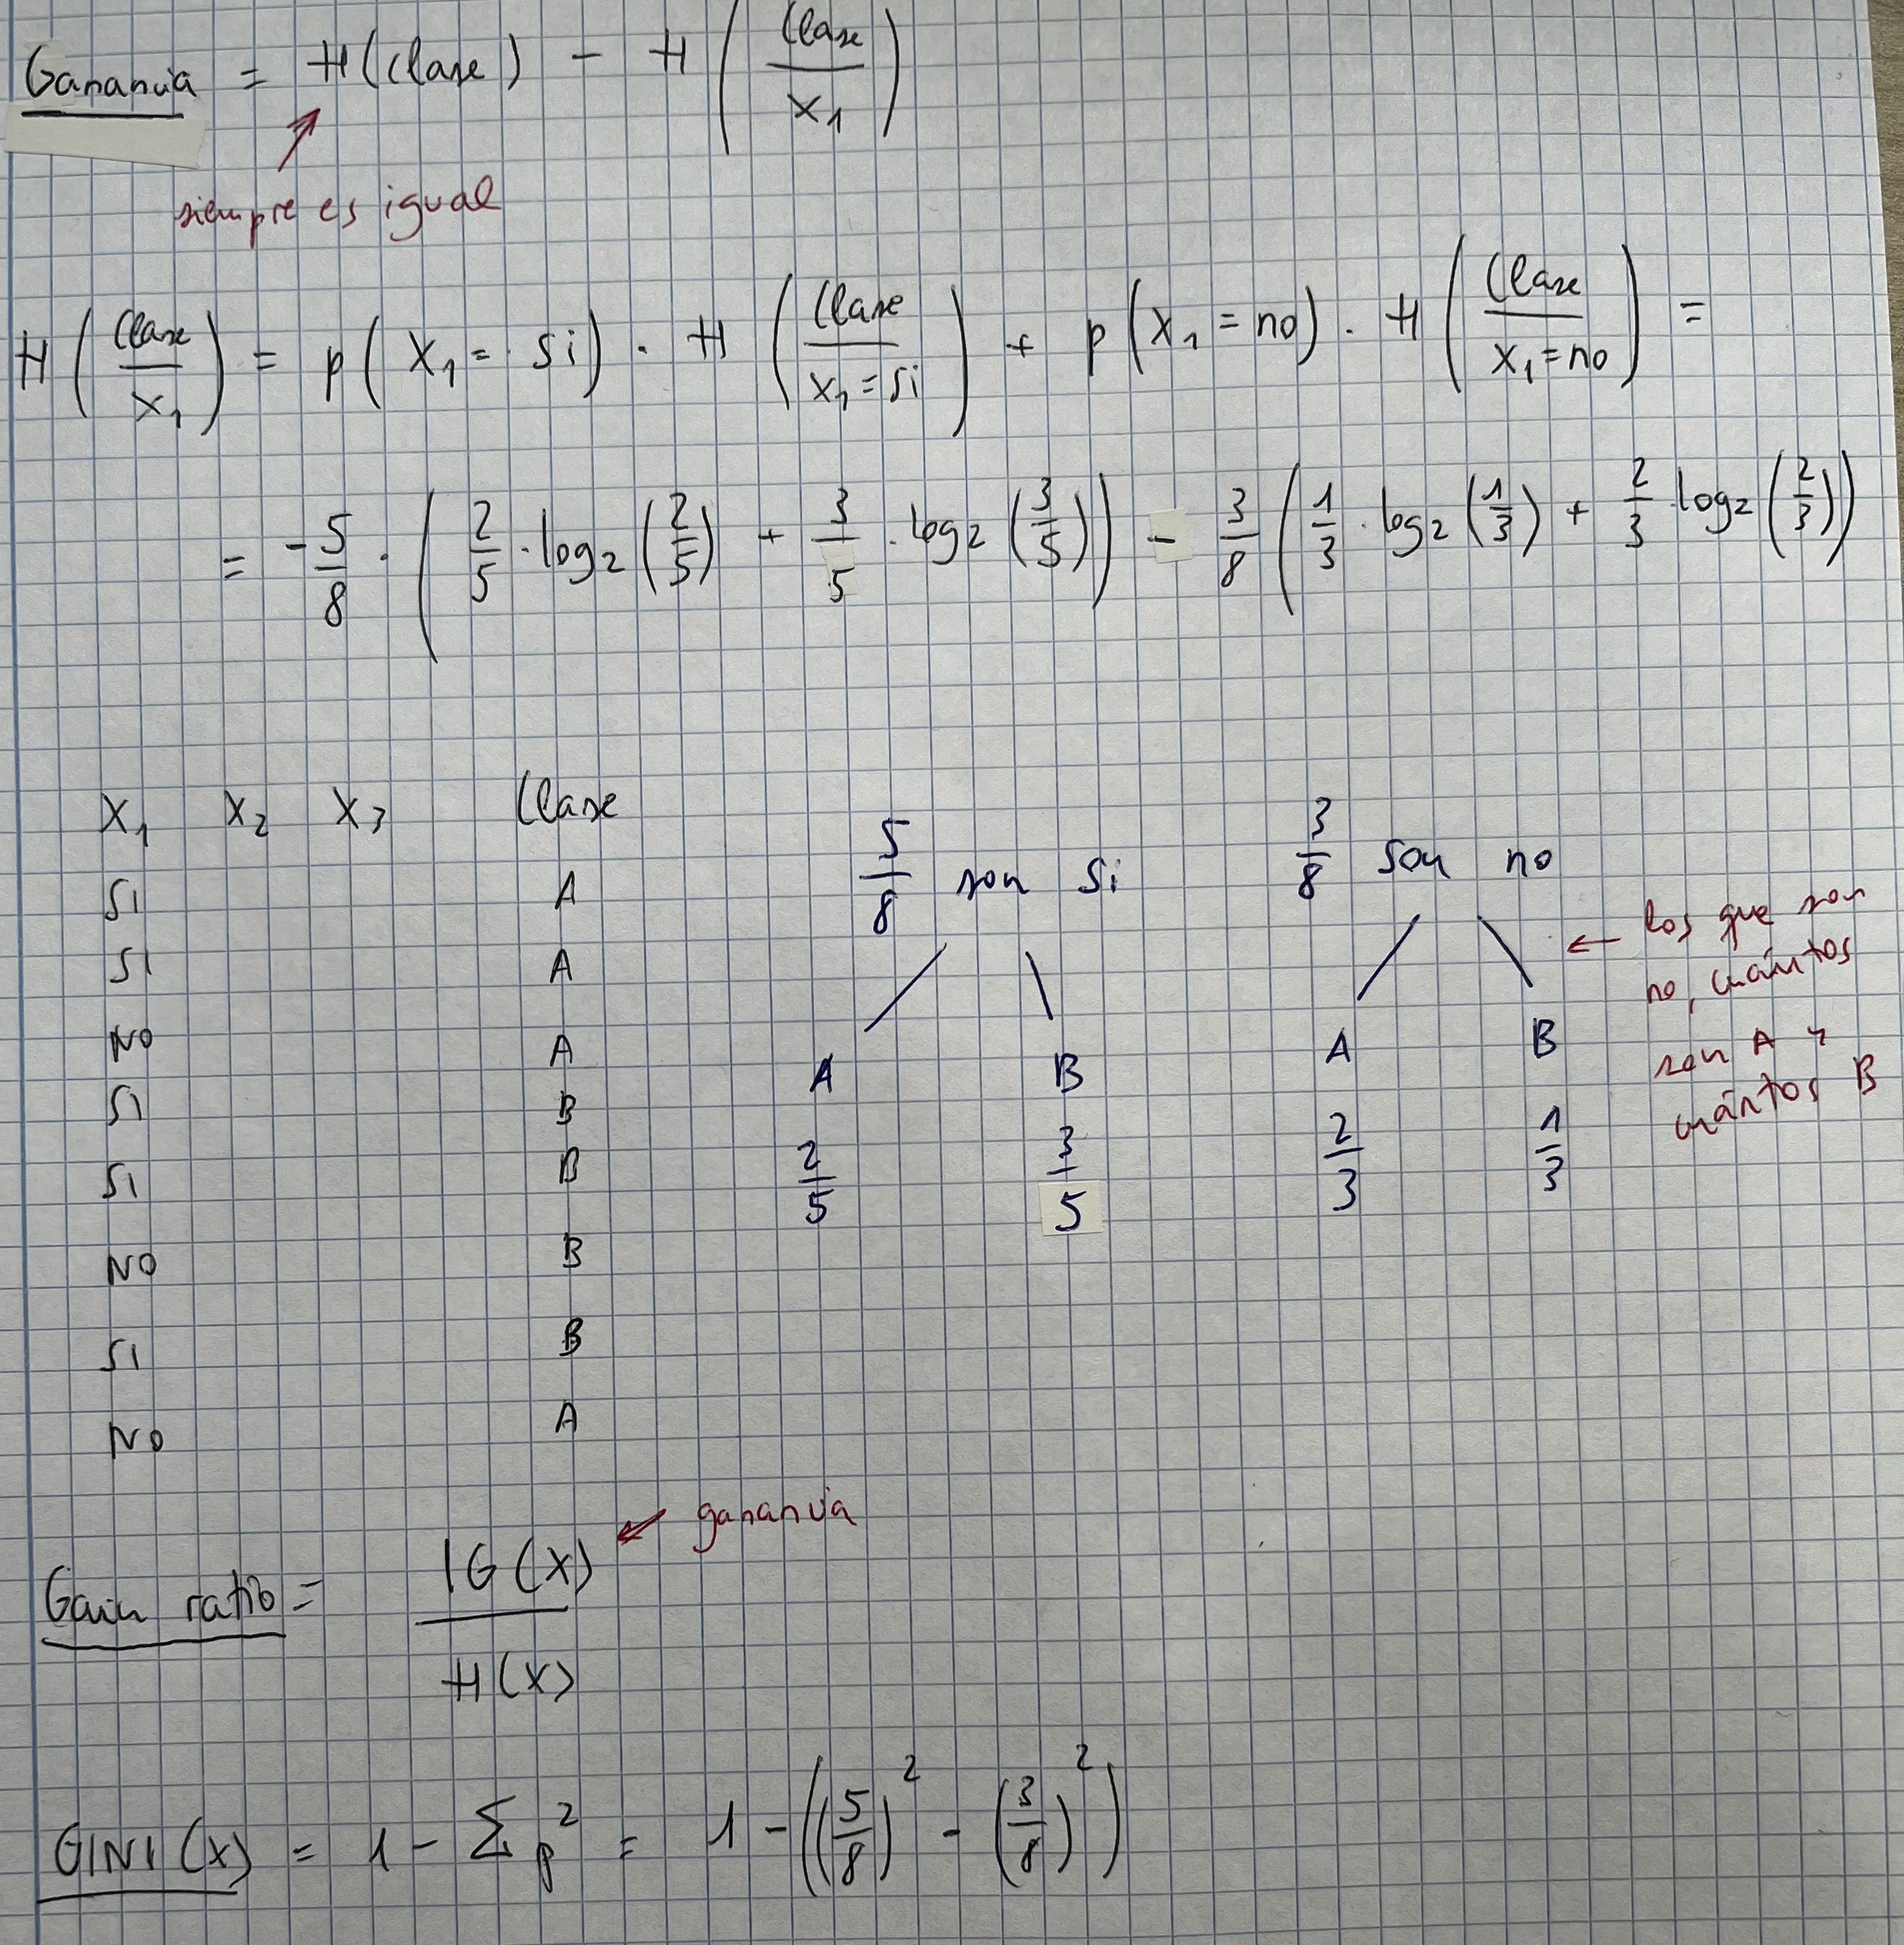 Ganancia = H(Clase) - H(Clase/X₁)
siempre es igual
H(Clase/X₁) = p(X₁ = si) · H(Clase/X₁=si) + p(X₁ = no) · H(Clase/X₁=no) =
= -5/8 · (2/5 · log₂(2/5) + 3/5 · log₂(3/5)) - 3/8 (1/3 · log₂(1/3) + 2/3 log₂(2/3))
X₁ X₂ X₃ Clase
SI A
SI A
NO A
SI B
SI B
NO B
SI B
NO A
5/8 son si
A B
2/5 3/5
3/8 son no
A B
2/3 1/3
← los que son
no, cuántos
son A y
cuántos B
ganancia
Gain ratio = IG(X)/H(X)
GINI(X) = 1 - Σ p² = 1 - ((5/8)² - (3/8)²)